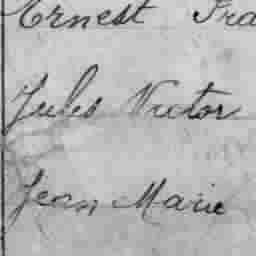 Ernest Fra
Jules Victor
Jean Marie